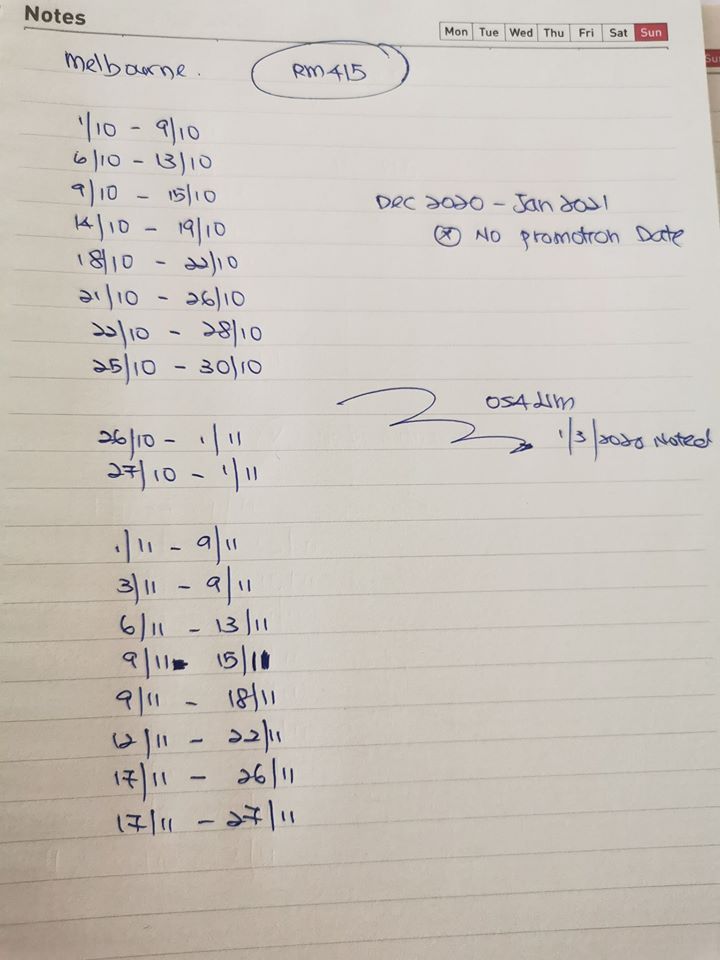 Notes
Mon Tue Wed Thu Fri Sat Sun
Melbourne. RM415
1/10 - 9/10
6/10 - 13/10
9/10 - 15/10
14/10 - 19/10
18/10 - 22/10
21/10 - 26/10
22/10 - 28/10
25/10 - 30/10
26/10 - 1/11
27/10 - 1/11
1/11 - 9/11
3/11 - 9/11
6/11 - 13/11
9/11 - 15/11
9/11 - 18/11
12/11 - 22/11
17/11 - 26/11
17/11 - 27/11
Dec 2020 - Jan 2021
* No promotion Date
1/3/2020 Noted